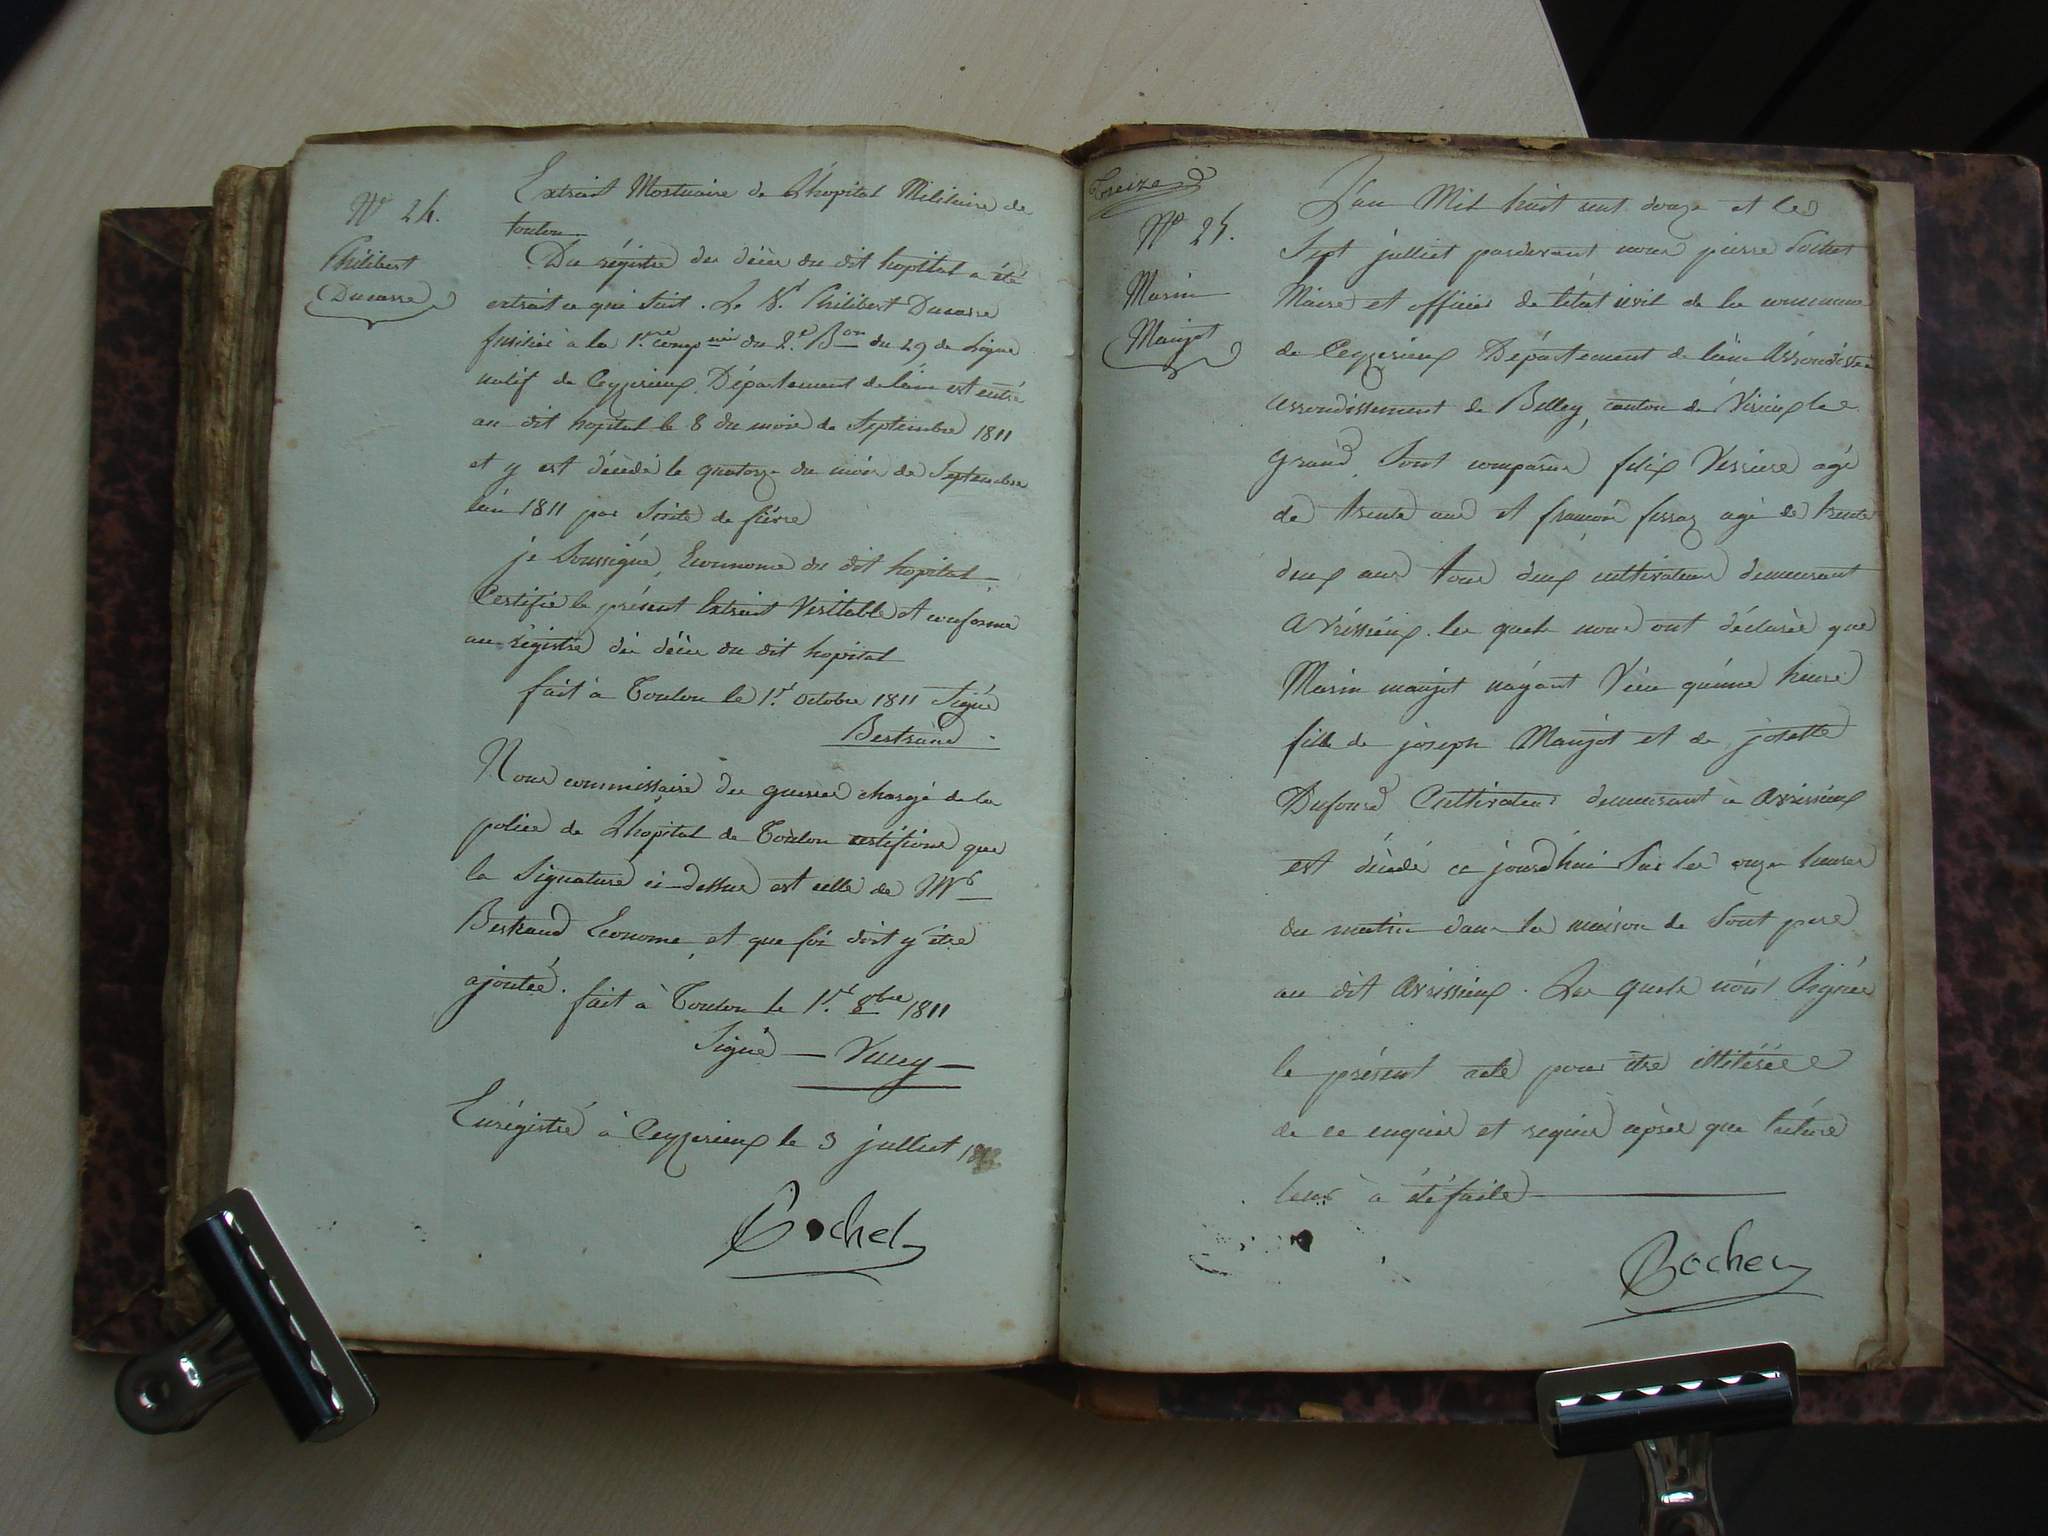 Nº 24.
Philibert
Ducarre
Extrait Mortuaire de L'hopital Militaire de
toulon.
Du régistre des décès du dit hopital a été
extrait ce qui suit. Le Sr. Philibert Ducarre
fusilié à la 1re. compnie du 2e. Bon du 29 de Ligne
natif de Ceyzerieux Département de lain est entré
au dit hopital le 8 du mois de Septembre 1811
et y est décédé le quatorze du mois de Septembre
lan 1811 par Suite de fiévre
je Soussigné, Econnome du dit hopital
Certifie le présent Extrait Véritable et conforme
au régistre des décès du dit hopital
fait à Toulon le 1r. octobre 1811 Signé
Bertrand
Nous commissaire des guerres chargé de la
police de L'hopital de Toulon certifions que
la Signature ci-dessus est celle de Mr
Bertrand Econome, et que foi doit y être
ajoutée. fait à Toulon le 1r. 8bre 1811
Signé — —
Enrégistré à Ceyzerieux le 3 julliet
Bochet
Treize
Nº 25.
Marin
Maujot
L'an Mil huit cent douze et le
Sept julliet pardevant nous pierre Bochet
Maire et officier de l'état civil de la commune
de Ceyzerieux Département de l'ain
arrondissement de Belley, canton de Virieux le
grand Sont comparus felix Verriere agé
de trente ans et françois ferraz agé de trente
deux ans tous deux cultivateurs demeurant
a Avrissieux. les quels nous ont déclarés que
Marin maujot n'ayant Vécu qu'une heure
fils de joseph Maujot et de josette
Dufour Cultivateur demeurant à avrissieux
est décédé ce jourd'hui Sur les onze heures
du matin dans la maison de Sont pere
au dit avrissieux. Les quels n'ont Signés
le présent acte pour être illitérés
de ce enquis et requis après que lecture
leur à été faite
Bochet